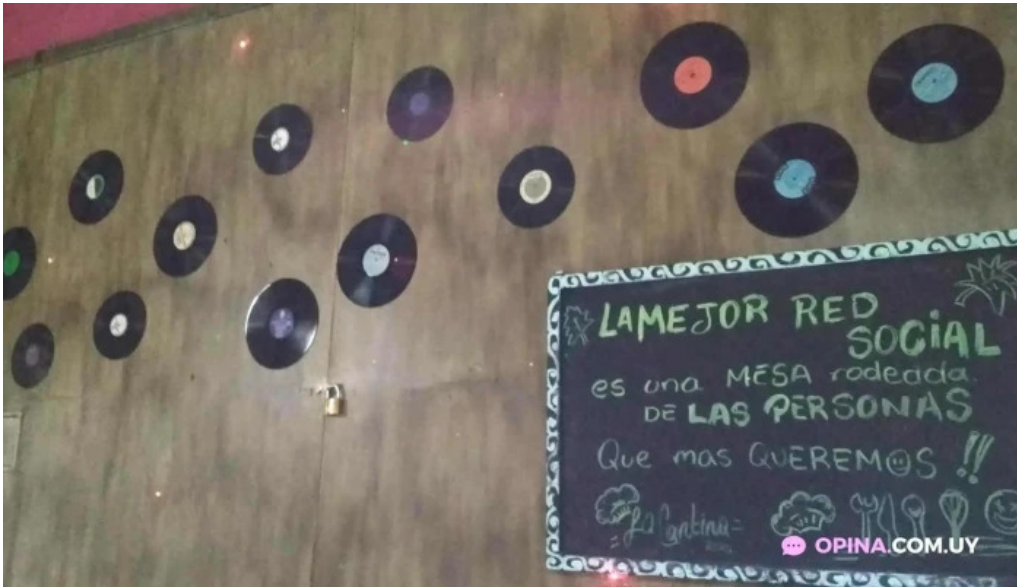 LA MEJOR RED
SOCIAL
es una MESA rodeada
DE LAS PERSONAS
Que mas QUEREMOS !!
La Cantina
OPINA.COM.UY